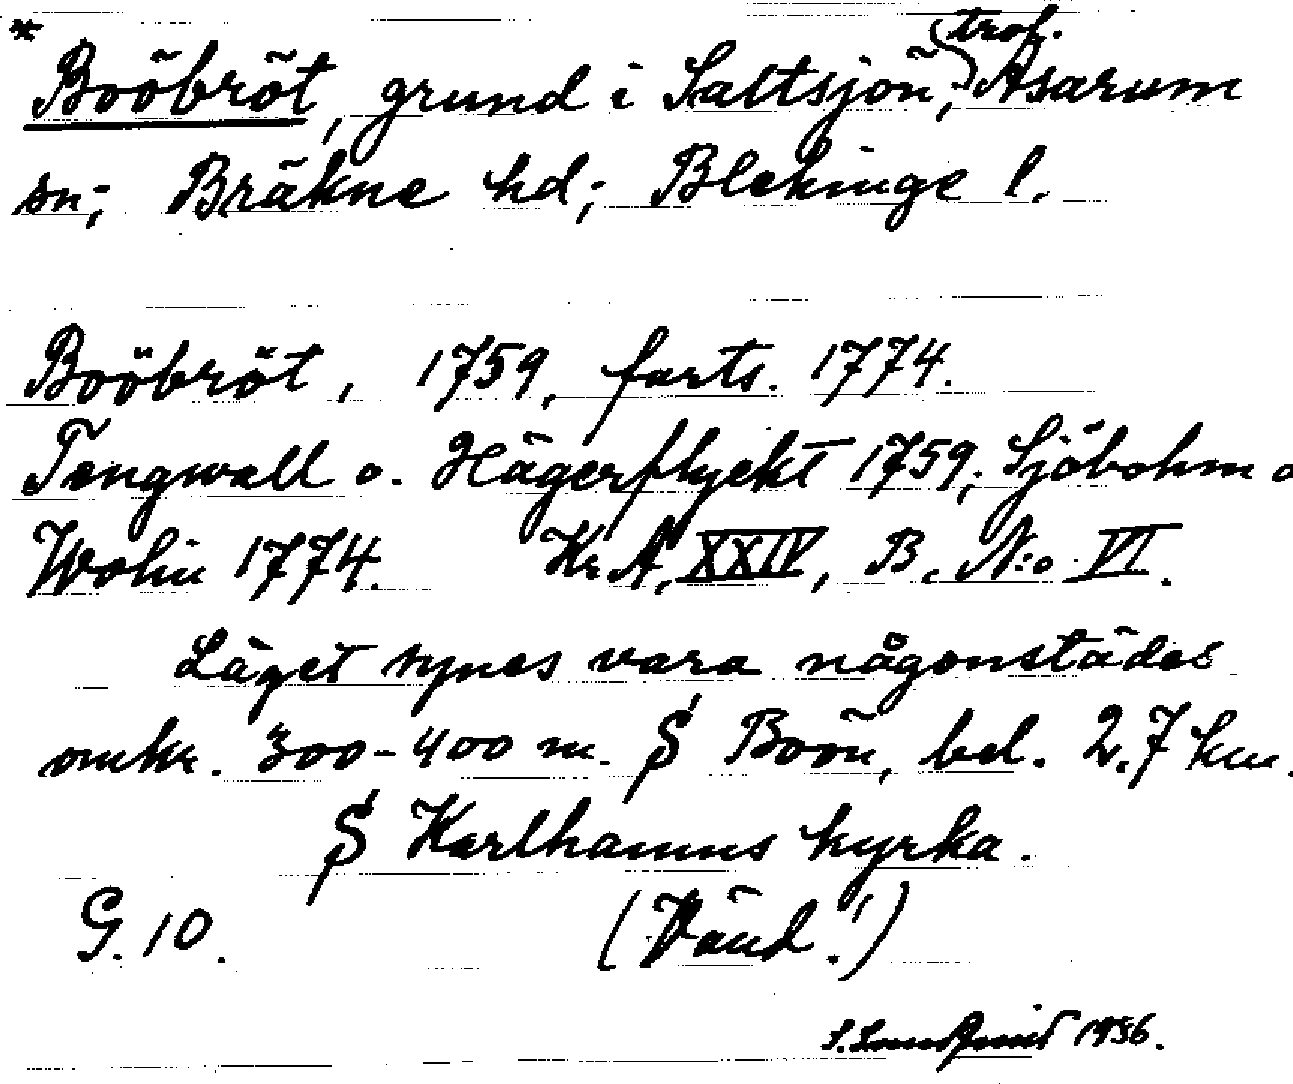 *
Boöbröt, grund i Saltsjön, (trol.) Asarum
sn; Bräkne hd; Blekinge l.
Boöbröt, 1759, forts. 1774.
Tengwall o. Hägerflyckt 1759; Sjöbohm o
Wolin 1774. Kr A, XXIV, B. N:o VI.
Läget synes vara någonstädes
omkr. 300-400 m. S Boön, bel. 2.7 km.
S Karlhamns kyrka.
G. 10. (Vänd!)
1936.